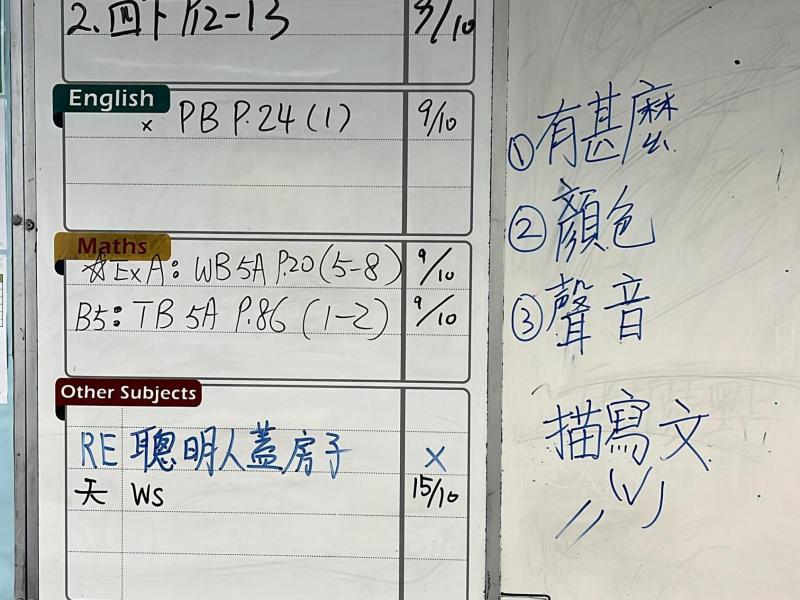 2. 四下 P.12-13 9/10
English
x PB P.24 (1) 9/10
Maths
☆ Ex A: WB 5A P.20 (5-8) 9/10
B5: TB 5A P.86 (1-2) 9/10
Other Subjects
RE 聰明人蓋房子 x
天 WS 15/10
① 有甚麼
② 顏色
③ 聲音
描寫文